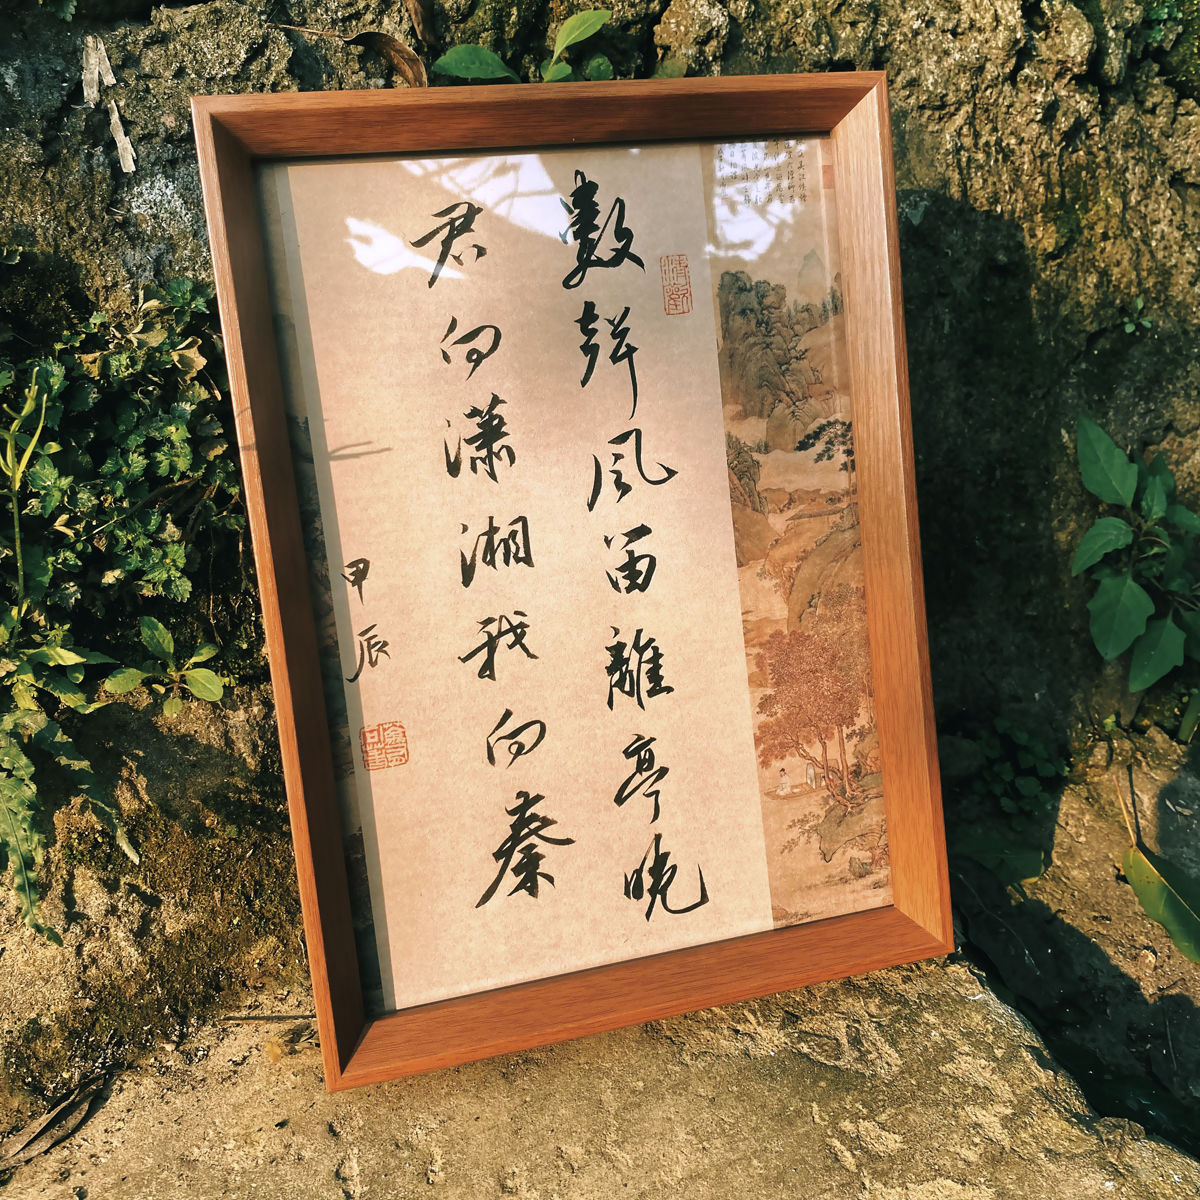 數聲風笛離亭晚
君向瀟湘我向秦
甲辰